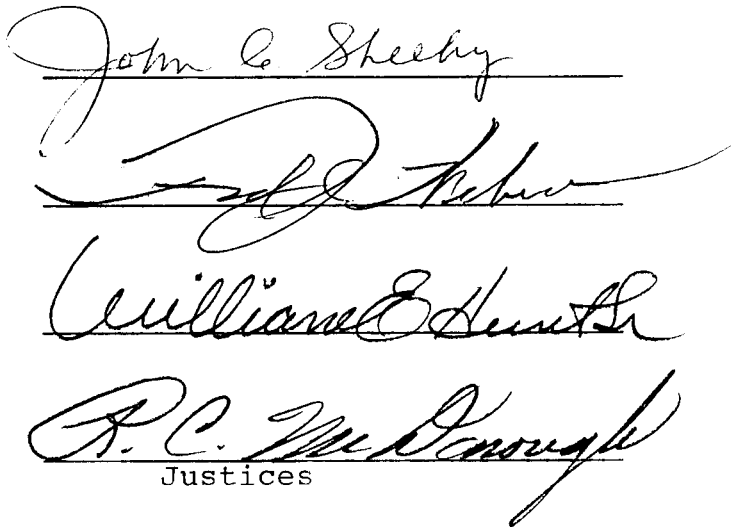 John C Sheehy
Fred J Weber
William E Hunt Sr
R. C. McDonough
Justices